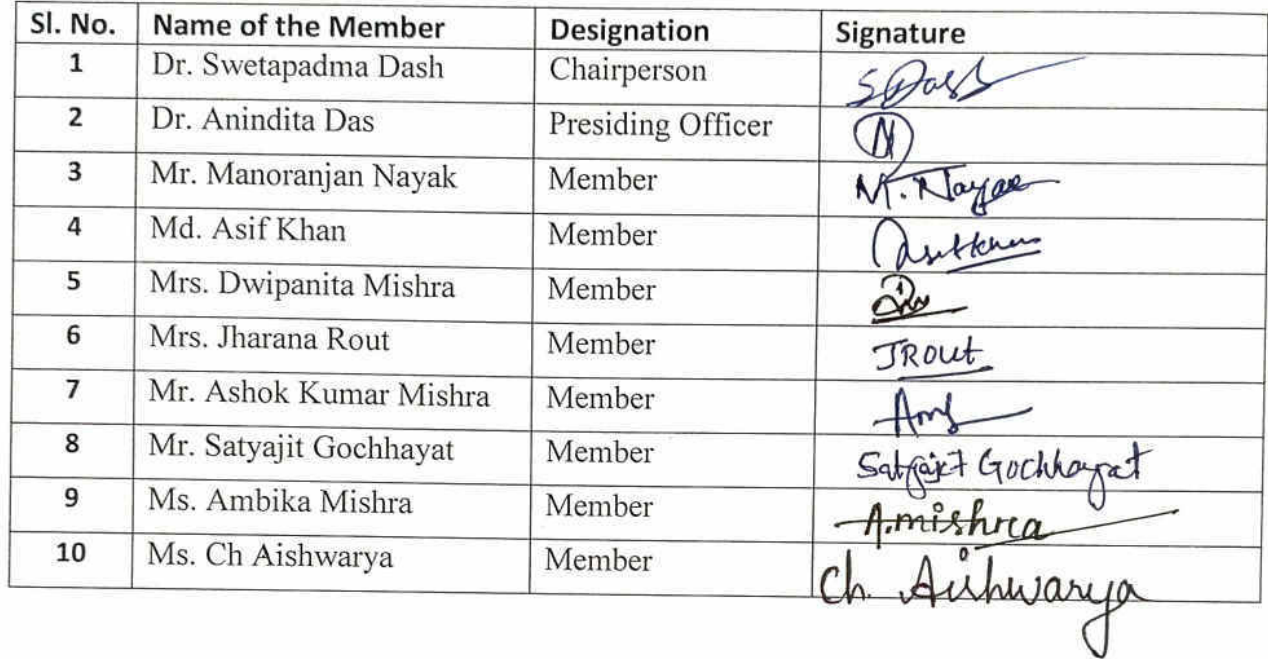 Sl. No. Name of the Member Designation Signature
1 Dr. Swetapadma Dash Chairperson S Dash
2 Dr. Anindita Das Presiding Officer
3 Mr. Manoranjan Nayak Member M. Nayak
4 Md. Asif Khan Member Asif Khan
5 Mrs. Dwipanita Mishra Member
6 Mrs. Jharana Rout Member JRout
7 Mr. Ashok Kumar Mishra Member
8 Mr. Satyajit Gochhayat Member Satyajit Gochhayat
9 Ms. Ambika Mishra Member A.mishra
10 Ms. Ch Aishwarya Member Ch. Aishwarya